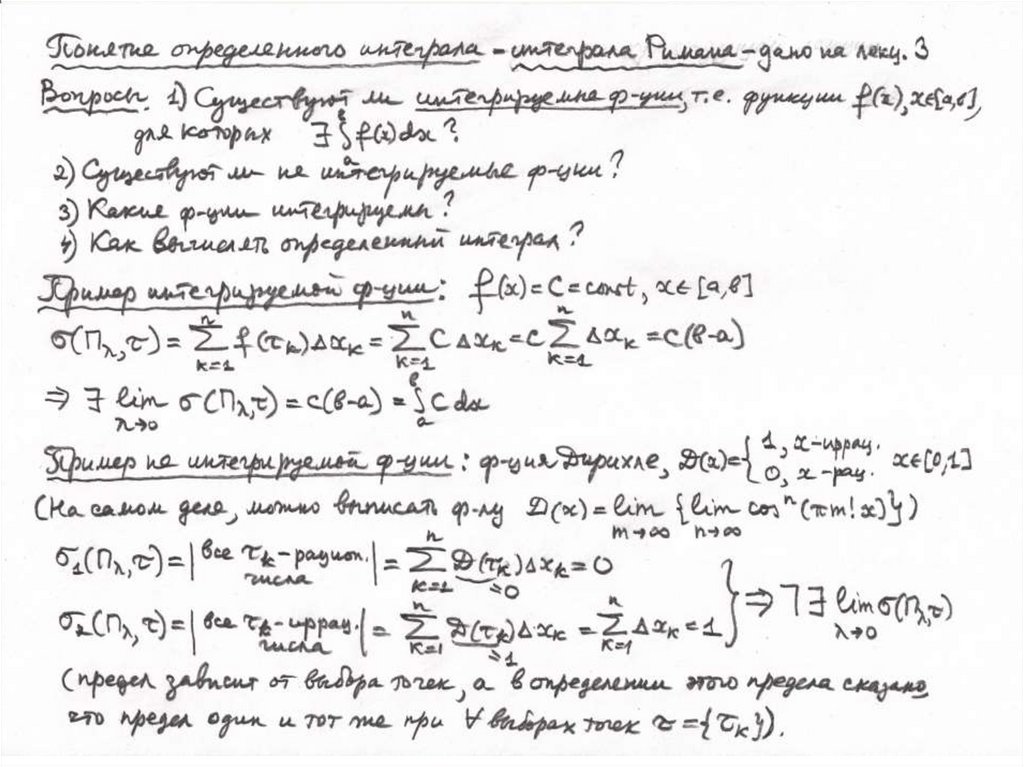 Понятие определенного интеграла – интеграла Римана – дано на лекц. 3
Вопросы. 1) Существуют ли интегрируемые ф-ции, т.е. функции f(x), x∈[a,в],
для которых ∃ ∫ₐᵇ f(x)dx?
2) Существуют ли не интегрируемые ф-ции?
3) Какие ф-ции интегрируемы?
4) Как вычислять определенный интеграл?
Пример интегрируемой ф-ции: f(x) = C = const, x∈[a,в]
σ(Π_λ,τ) = ∑_{k=1}^{n} f(τ_k)Δx_k = ∑_{k=1}^{n} C Δx_k = c ∑_{k=1}^{n} Δx_k = c(в-a)
⇒ ∃ lim_{λ→0} σ(Π_λ,τ) = c(в-a) = ∫_a^в C dx
Пример не интегрируемой ф-ции: ф-ция Дирихле, D(x) = { 1, x-иррац. 0, x-рац. x∈[0,1]
(На самом деле, можно выписать ф-лу D(x) = lim_{m→∞} {lim_{n→∞} cosⁿ(πm!x)})
σ₁(Π_λ,τ) = | все τ_k-рацион. числа | = ∑_{k=1}^{n} D(τ_k)Δx_k = 0
=0
σ₂(Π_λ,τ) = | все τ_k-иррац. числа | = ∑_{k=1}^{n} D(τ_k)Δx_k = ∑_{k=1}^{n} Δx_k = 1 } ⇒ ⅂ ∃ lim_{λ→0} σ(Π_λ,τ)
=1
(предел зависит от выбора точек, а в определении этого предела сказано,
что предел один и тот же при ∀ выборах точек τ = {τ_k}).